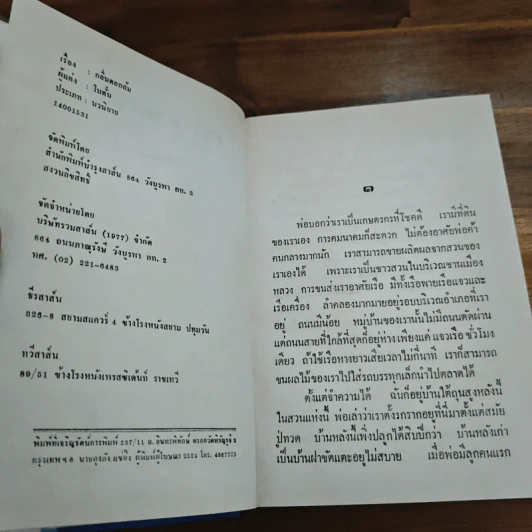 เรื่อง : กลิ่นดอกส้ม
ผู้แต่ง : โบตั๋น
ประเภท : นวนิยาย
14001531
จัดพิมพ์โดย
สำนักพิมพ์บำรุงสาส์น 864 วังบูรพา กท. 2
สงวนลิขสิทธิ์
จัดจำหน่ายโดย
บริษัทรวมสาส์น (1977) จำกัด
864 ถนนภาณุรังษี วังบูรพา กท. 2
ทศ. (02) 221-6483
ธีรสาส์น
326-8 สยามสแควร์ 4 ข้างโรงหนังสยาม ปทุมวัน
ทวีสาส์น
89/51 ข้างโรงหนังเพรสซิเด้นท์ ราชเทวี
พิมพ์ที่เจริญรัตน์การพิมพ์ 257/11 ถ. อินทรพิทักษ์
กรุงเทพ ฯ 6 ผู้พิมพ์ผู้โฆษณา 2524 โทร. 4667773
๑
พ่อบอกว่าเราเป็นเกษตรกรที่โชคดี เรามีที่ดิน
ของเราเอง การคมนาคมก็สะดวก ไม่ต้องอาศัยพ่อค้า
คนกลางมากนัก เราสามารถขายผลิตผลจากสวนของ
เราเองได้ เพราะเราเป็นชาวสวนในบริเวณชานเมือง
หลวง การขนส่งเราอาศัยเรือ มีทั้งเรือพายเรือแจวและ
เรือเครื่อง ลำคลองมากมายอยู่รอบบริเวณอำเภอที่เรา
อยู่ ถนนมีน้อย หมู่บ้านของเรานั้นไม่มีถนนตัดผ่าน
แต่ถนนสายที่ใกล้ที่สุดก็อยู่ห่างเพียงแค่แจวเรือชั่วโมง
เดียว ถ้าใช้เรือหางยาวเสียเวลาไม่กี่นาที เราก็สามารถ
ขนผลไม้ของเราไปใส่รถบรรทุกเล็กนำไปตลาดได้
ตั้งแต่จำความได้ ฉันก็อยู่บ้านใต้ถุนสูงหลังนี้
ในสวนแห่งนี้ พ่อเล่าว่าเราตั้งรกรากอยู่ที่นี่มาตั้งแต่สมัย
ปู่ทวด บ้านหลังนี้เพิ่งปลูกได้สิบปีกว่า บ้านหลังเก่า
เป็นบ้านฝาขัดแตะอยู่ไม่สบาย เมื่อพ่อมีลูกคนแรก